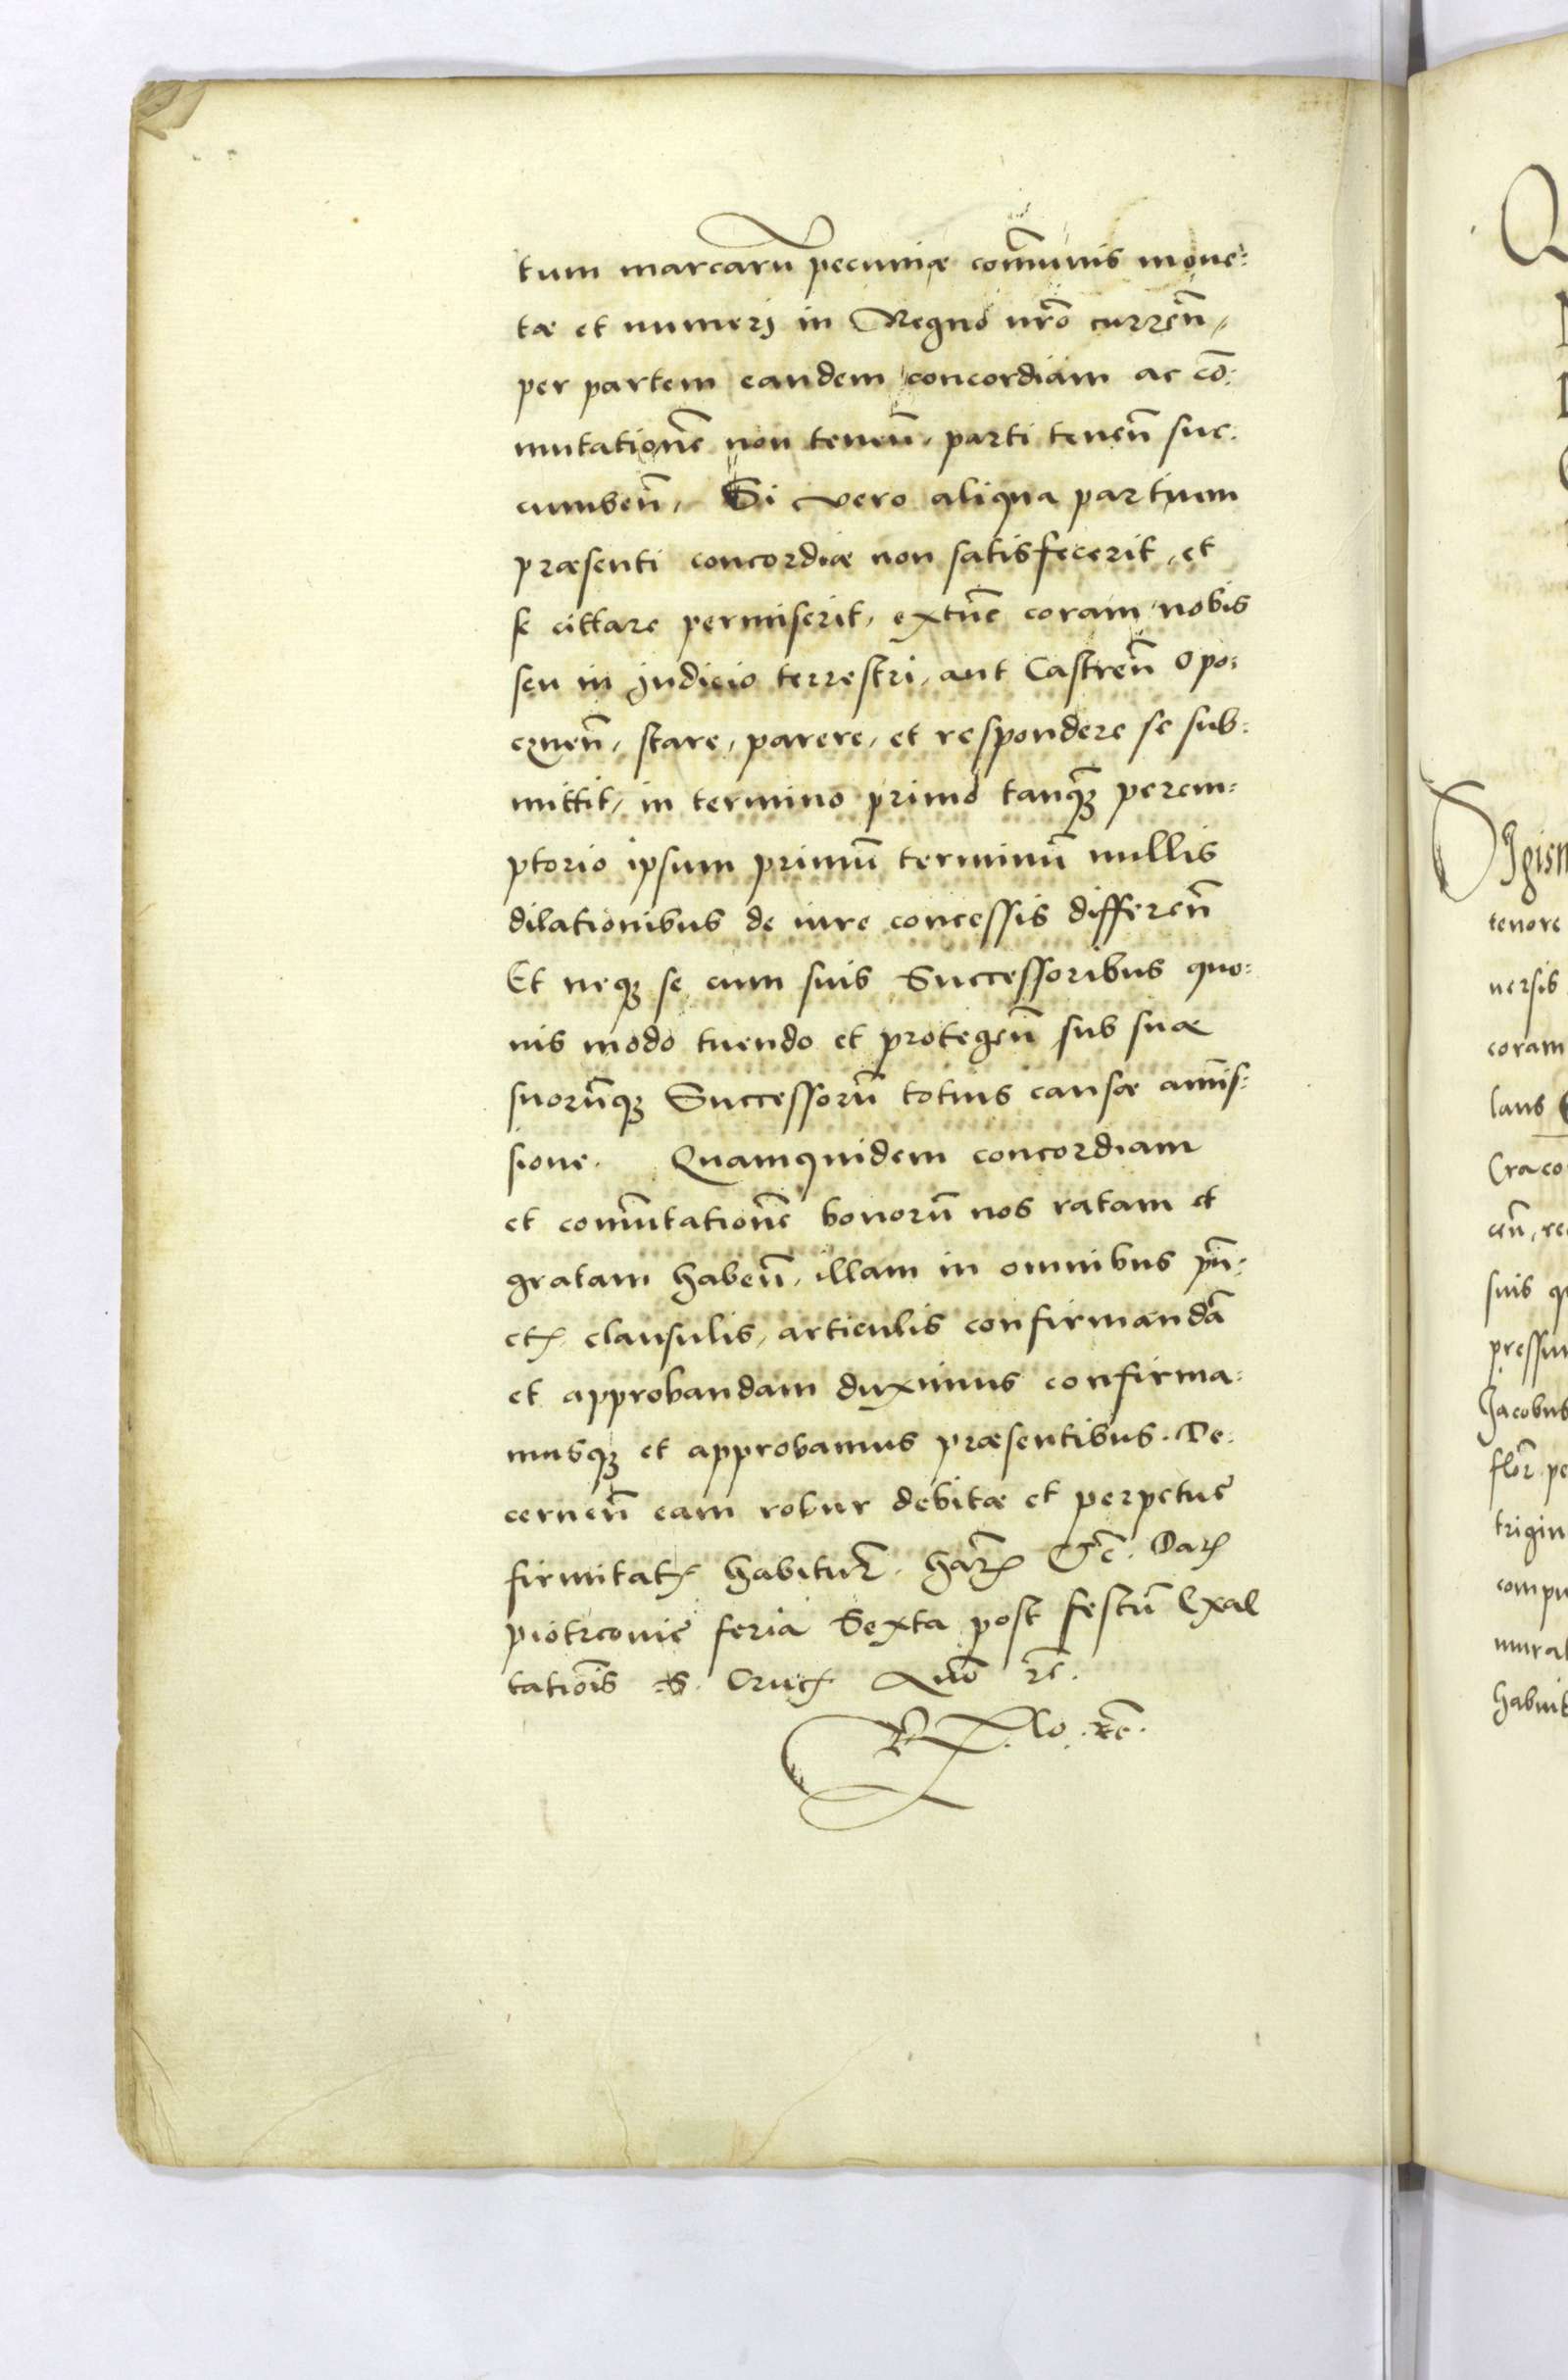 tum marcarū pecuniæ com̄unis mone:
tæ et numerj in Regno nr̄o curren̄,
per partem eandem concordiam ac cō:
mutationē non tenen̄, parti tenen̄ suc:
cumben̄, Si vero aliqua partium
præsenti concordiæ non satisfecerit, et
se cittare permiserit, extūc coram nobis
seu in judicio terrestri, aut Castren̄ Opo:
cznen̄, stare, parere, et respondere se sub:
mittit, in termino primo tanqȝ perem:
ptorio ipsum primū terminū nullis
dilationibus de iure concessis differen̄
Et neqȝ se cum suis Successoribus quo:
uis modo tuendo et protegen̄ sub suæ
suorūqȝ Successorū totius causæ amis̄:
sione. Quamquidem concordiam
et com̄utationē bonorū nos ratam et
gratam haben̄, illam in omnibus pūn:
ctꝭ clausulis, articulis confirmandā
et approbandam duximus confirma:
musqȝ et approbamus præsentibus. De:
cernen̄ eam robur debitæ et perpetuę
firmitatꝭ habitur̄. har̄ꝭ Etc̄. Datꝭ
piotrcovię feria Sexta post festū Exal
tatiōis S. Crucꝭ Quō rc̄.
Rꝭ. Vo. rc̄.
Q
Sigism
tenore
uersis
coram
laus
Craco
cen̄, re
suis q
pressiu
Jacobus
flor̄ pe
trigin
compu
mural
habuit